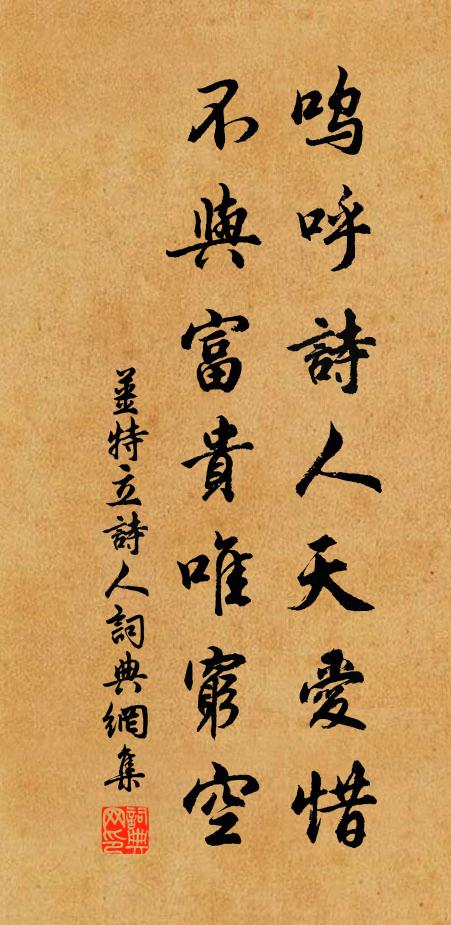 嗚呼詩人天愛惜
不與富貴唯窮空
姜特立詩人詞典網集
詞典網印